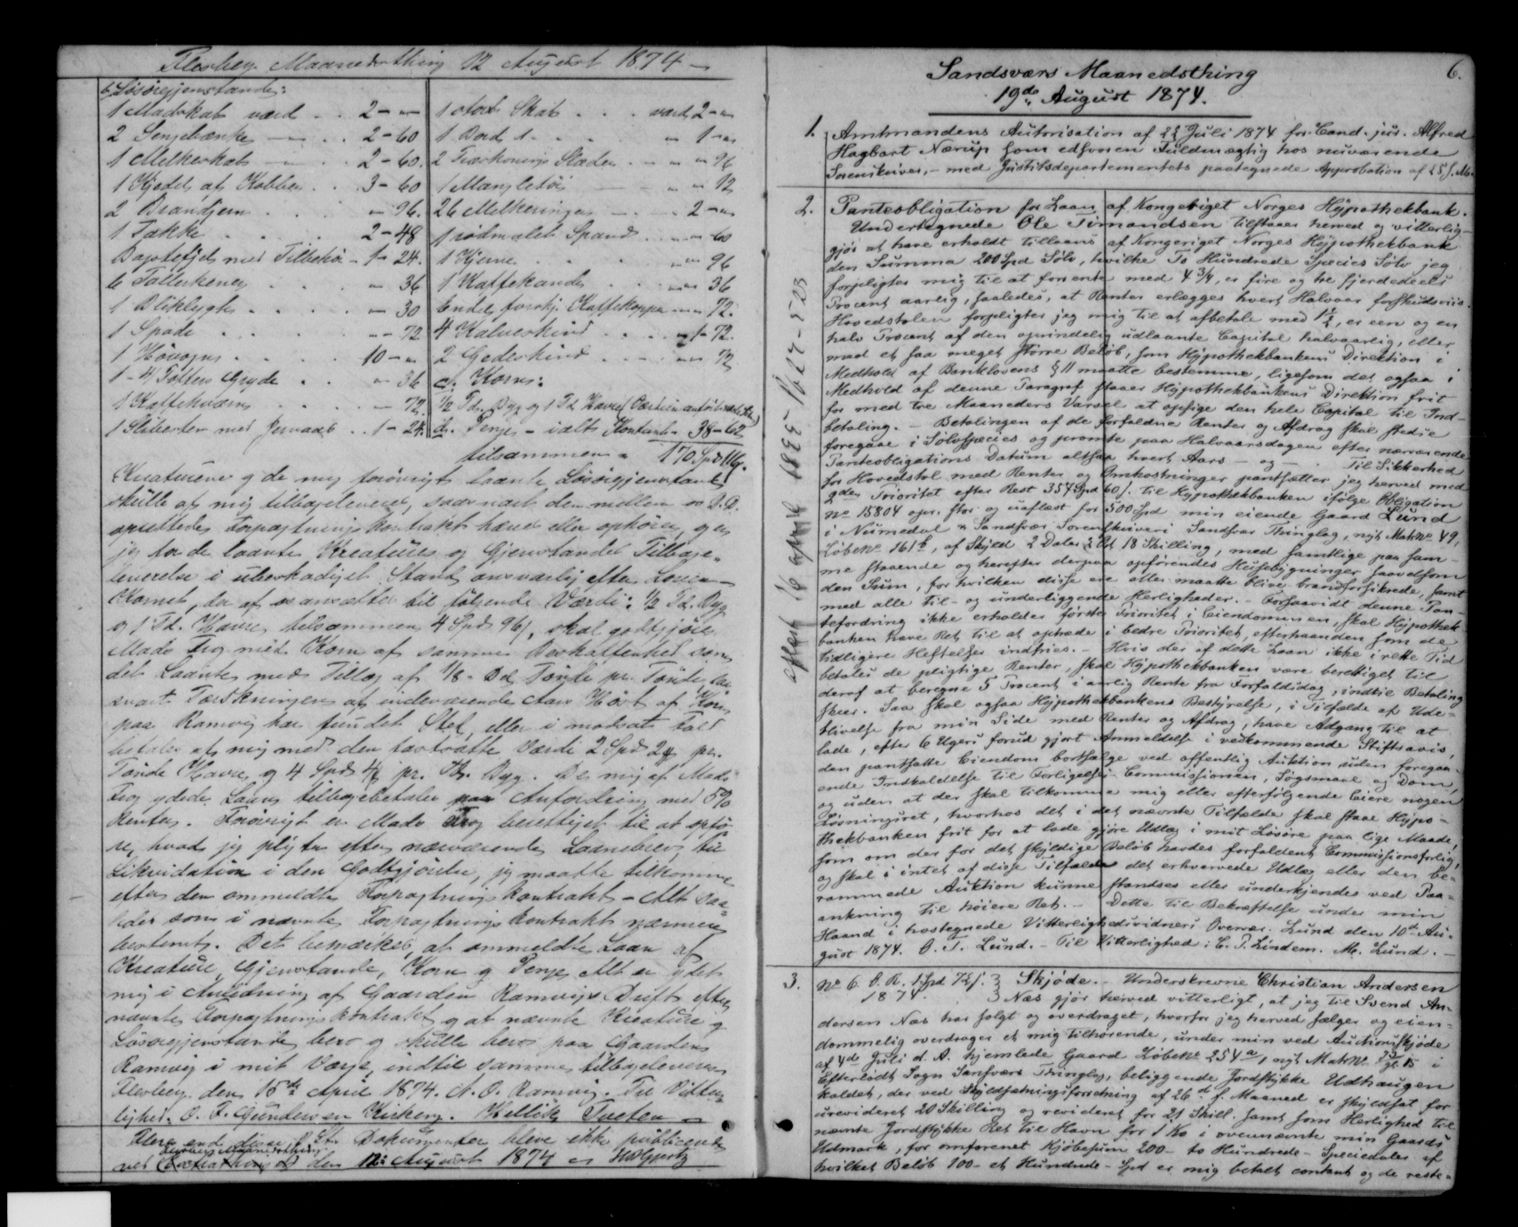 Flesberg Maanedsthing 12 August 1874
b, Løsøregjenstande:
1 Madskab værd . . 2 - "
2 Sengebænke - . . 2 - 60
1 Melkeskab - . . 2 - 60
1 Kjedel af Kobber . . 3 - 60
2 Brandjern . . . " 96.
1 Takke . . . 2 - 48
1 - 24.
6 Tallerkener . . . - 36
1 Bliklygte . . . - 30
1 Spade . . . - 72
1 Høvogn . . . 10 - "
1 - 4 Potters Gryde . . - 36
1 Kaffekværn . . . - 72.
1 Slibesten med . . 1 - 24.
1 stort Skab . . . værd 2 - "
1 Bord d. . . " 1 - "
2 Slæder . . " " 96
1 . . " " 12
26 Melkeringer . . 2 - "
1 rødmalet Spand . . " 60
1 Kjerne . . . " 96
1 Kaffekande . . " 36
Endel forskj. Kaffekopper " 72.
4 Kalveskind . . " 1 - 72.
2 Gedeskind . . " 72
c, Korn:
1/2 Td. Byg og 1 Td. Havre
d. Penge - idlt Kontant - 38 - 62
tilsammen = 170 Spd 116.
Kreaturene og de mig forøvrigt laante Løsøregjenstande
skulle af mig tilbageleveres, saasnart den mellem os D.D.
oprettede Forpagtnings Kontrakt hæves eller ophører, og er
jeg for de laante Kreature og Gjenstandes Tilbage-
leverelse i ubeskadiget Stand ansvarlig efter Loven -
Kornet, der af os ansættes til følgende Værdi: 1/2 Td. Byg
og 1 Td. Havre tilsammen 4 Spd 96/, skal godtgjøres
Mads med Korn af samme Beskaffenhed som
det Laante med Tillæg af 1/8 Td. Tønde pr. Tønde
snart Tærskningen af indeværende Aars Høst af Korn
paa Ramvig har fundet Sted, eller i modsat Fald
betales af mig med den fastsatte Værdi 2 Spd 24 pr.
Tønde Havre, og 4 Spd pr. Td. Byg. De mig af Mads
ydede Laan tilbagebetales paa Anfordring med 5%
Renter. Forøvrigt er Mads berettiget til at opfø-
re, hvad jeg skylder efter nærværende Laanebrev, til
Likvidation i den Godtgjørelse, jeg maatte tilkomme
efter den ommeldte Forpagtnings Kontrakt - Alt saa-
ledes som i nævnte Forpagtnings Kontrakt nærmere
bestemt. Det bemærkes, at ommeldte Laan af
Kreature, Gjenstande, Korn og Penge Alt er ydet
mig i Anledning af Gaarden Ramvigs Drift efter
nævnte Forpagtnings kontrakt, og at nævnte Kreature og
Løsøregjenstande bero og skulle bero paa Gaarden
Ramvig i mit Værge, indtil samme tilbageleveres
Flesberg den 15de April 1874. A. O. Ramvig. Til Vitter-
lighed: O. F. Gundersen Kirkeng. Tveten
Flere end disse Dokumenter bleve ikke publicerede
ved den 12 August 1874
Sandsværs Maanedsthing
19de August 1874.
6.
1. Amtmandens Autorisation af 22 Juli 1874 for Cand. jur. Alfred
Hagbart Nærup som edsvoren Fuldmægtig hos nuværende
Sorenskriver, - med Justitsdepartementets paategnede Approbation af
2. Panteobligation for Laan af Kongeriget Norges Hypothekbank.
Undertegnede Ole Simondsen tilstaaer herved og vitterlig-
gjør at have erholdt tillaans af Kongeriget Norges Hypothekbank
den Summa 200 Spd Sølv, hvilke To Hundrede Species Sølv jeg
forpligter mig til at forrente med 4 3/4, er fire og tre fjerdedeels
Procent aarlig, saaledes, at Renter erlægges hvert Halvaar forskudsviis.
Hovedstolen forpligter jeg mig til at afbetale med 1 1/2, er een og en
halv Procent af den oprindelig udlaante Capital halvaarlig, eller
med et saa meget større Beløb, som Hypothekbankens Direktion i
Medhold af Banklovens § 11 maatte bestemme, ligesom det ogsaa i
Medhold af denne Paragraf staaer Hypothekbankens Direktion frit
for med tre Maaneders Varsel at opsige den hele Capital til Ind-
betaling. - Betalingen af de forfaldne Renter og Afdrag skal stedse
foregaae i Sølvspecies og promte paa Halvaarsdagen efter nærværende
Panteobligations Datum altsaa hvert Aars - og - . Til Sikkerhed
for Hovedstol med Renter og Omkostninger pantsætter jeg herved med
2den Prioritet efter Rest 354 Spd 60 s. til Hypothekbanken ifølge Obligation
No 15804 opr. stor og uafløst for 500 Spd min eiende Gaard Lund
i Numedal & Sandsvær Sorenskriveri Sandsvær Thinglag, nyt Matr No 49,
Løbe No 161 b, af Skyld 2 Daler 2 Ort 18 Skilling, med samtlige paa sam-
me staaende og herefter derpaa opførendes Huusbygninger saavelsom
den Sum, for hvilken disse ere eller maatte blive brandforsikrede, samt
med alle til- og underliggende Herligheder. - Forsaavidt denne Pan-
tefordring ikke erholder første Prioritet i Eiendommen, skal Hypothek-
banken have Ret til at optræde i bedre Prioritet, efterhaanden som de
tidligere Heftelser indfries. - Hvis der af dette Laan ikke i rette Tid
betales de pligtige Renter, skal Hypothekbanken være berettiget til
deraf at beregne 5 Procent i aarlig Rente fra Forfaldsdag, indtil Betaling
skeer. Saa skal ogsaa Hypothekbankens Bestyrelse, i Tilfælde af Ude-
blivelse fra min Side med Renter og Afdrag, have Adgang til at
lade, efter 6 Ugers forud gjort Anmeldelse i vedkommende Stiftsavis,
den pantsatte Eiendom bortsælge ved offentlig Auktion uden foregaa-
ende Indkaldelse til Forligelses Commissionen, Søgsmaal og Dom,
og uden at der skal tilkomme mig eller efterfølgende Eiere nogen
Løsningsret, hvorhos det i det nævnte Tilfælde skal staae Hypo-
thekbanken frit for at lade gjøre Udlæg i mit Løsøre paa lige Maade,
som om der for det skyldige Beløb havdes forfaldent Commissionsforlig,
og skal i intet af disse Tilfælde det erhvervede Udlæg eller den be-
rammede Auktion kunne standses eller underkjendes ved Paa-
ankning til høiere Ret. - Dette til Bekræftelse under min
Haand i hostegnede Vitterlighedsvidners Overvær. Lund den 10de Au-
gust 1874. O. S. Lund. - Til Vitterlighed: C. P. Lindem. M. Lund. -
afløst 16 april 1895
3. No 6. O. R. 1 Spd 72 s. 1874. Skjøde. - Underskrevne Christian Andersen
Næs gjør herved vitterligt, at jeg til Svend An-
dersen Næs har solgt og overdraget, hvorfor jeg herved sælger og eien-
dommelig overdrager et mig tilhørende, under min ved Auktionsskjøde
af 4de Juli d. A. hjemlede Gaard Løbe No 254 a, nyt Matr No i
Efterlødt Sogn Sandsvær Thinglag, beliggende Jordstykke Udhaugen
kaldet, der ved Skyldsætningsforretning af 26de f. Maaned er skyldsat for
urevideret 20 Skilling og revideret for 21 Skill. samt som Herlighed til
nævnte Jordstykke Ret til Havn for 1 Ko i ovennævnte min Gaards
Udmark, for omforenet Kjøbesum 200 - to Hundrede - Speciedaler af
hvilket Beløb 100 - et Hundrede - Spd er mig betalt contant og de reste-